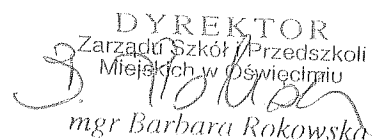 DYREKTOR
Zarządu Szkół i Przedszkoli
Miejskich w Oświęcimiu
mgr Barbara Rokowska